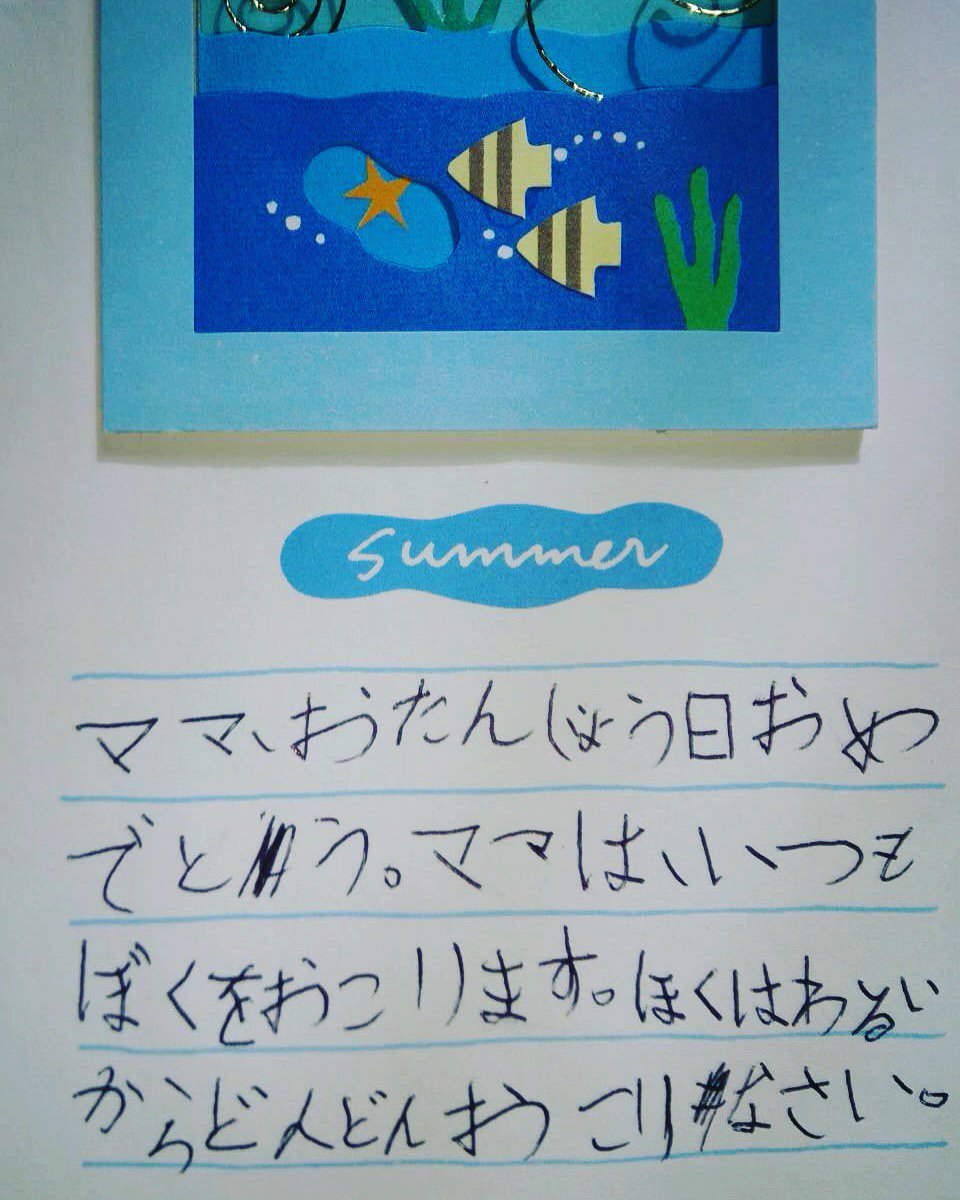 summer
ママ、おたんじょう日おめ
でとう。ママは、いつも
ぼくをおこります。ほくはわるい
からどんどんおこりなさい。